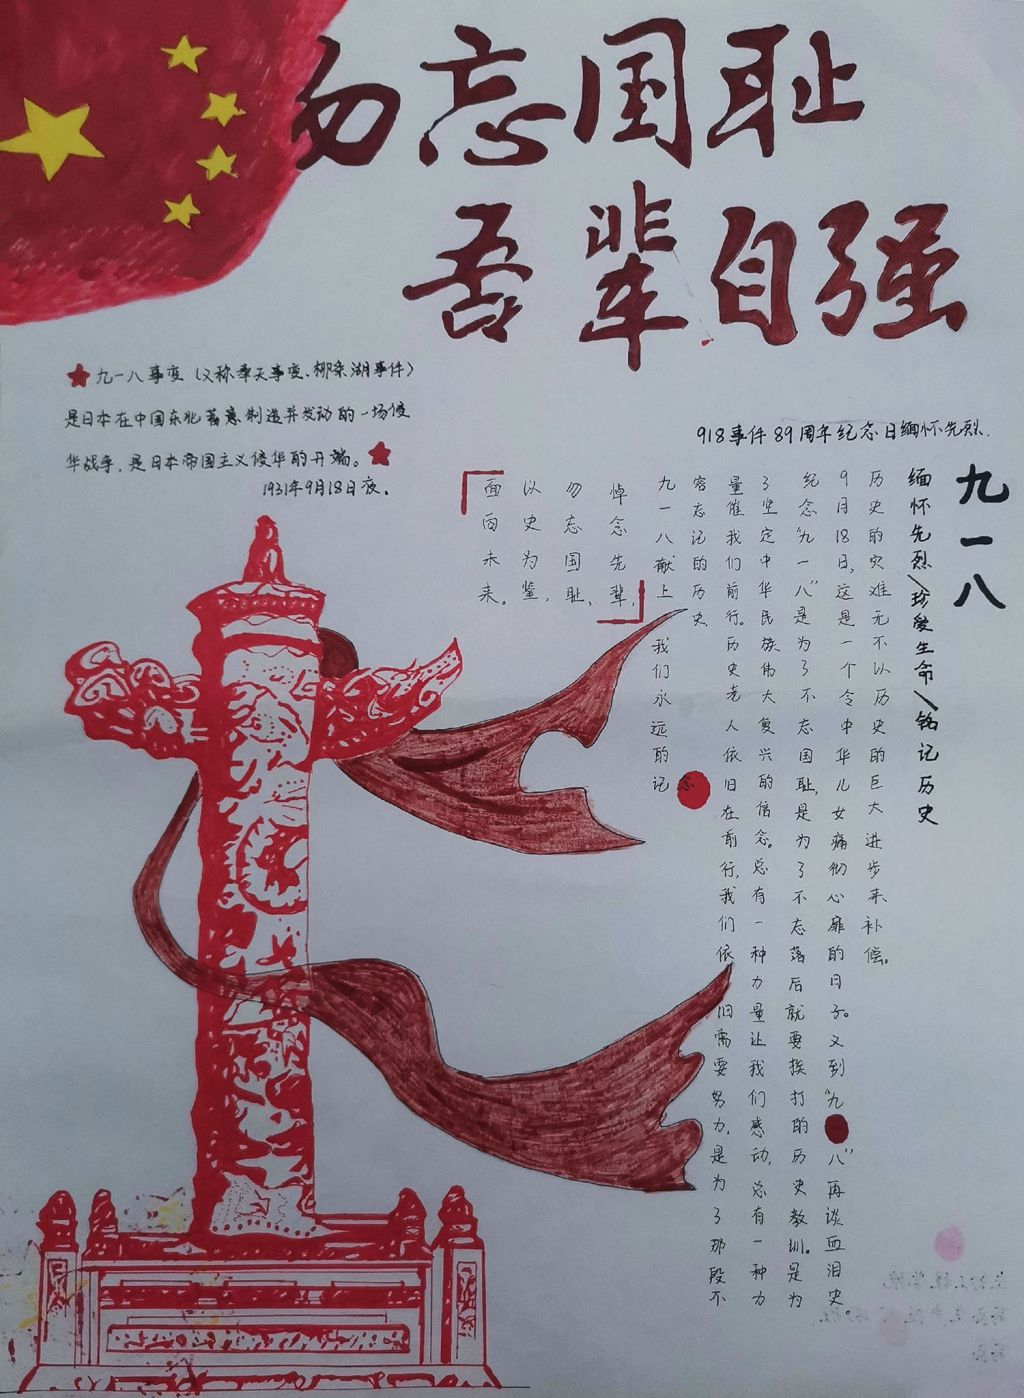 勿忘国耻
吾辈自强
九一八事变（又称奉天事变、柳条湖事件）
是日本在中国东北蓄意制造并发动的一场侵
华战争，是日本帝国主义侵华的开端。
1931年9月18日夜。
918事件89周年纪念日缅怀先烈.
九一八
缅怀先烈\珍爱生命\铭记历史
历史的灾难无不以历史的巨大进步来补偿。
9月18日，这是一个令中华儿女痛彻心扉的日子。又到“九 八”再谈血泪史。
纪念“九一八”是为了不忘国耻，是为了不忘落后就要挨打的历史教训。是为
了坚定中华民族伟大复兴的信念。总有一种力量让我们感动，总有一种力
量催我们前行。历史老人依旧在前行，我们依旧需要努力，是为了那段不
容忘记的历史
九一八献上 我们永远的记
悼念先辈，
勿忘国耻，
以史为鉴，
面向未来。